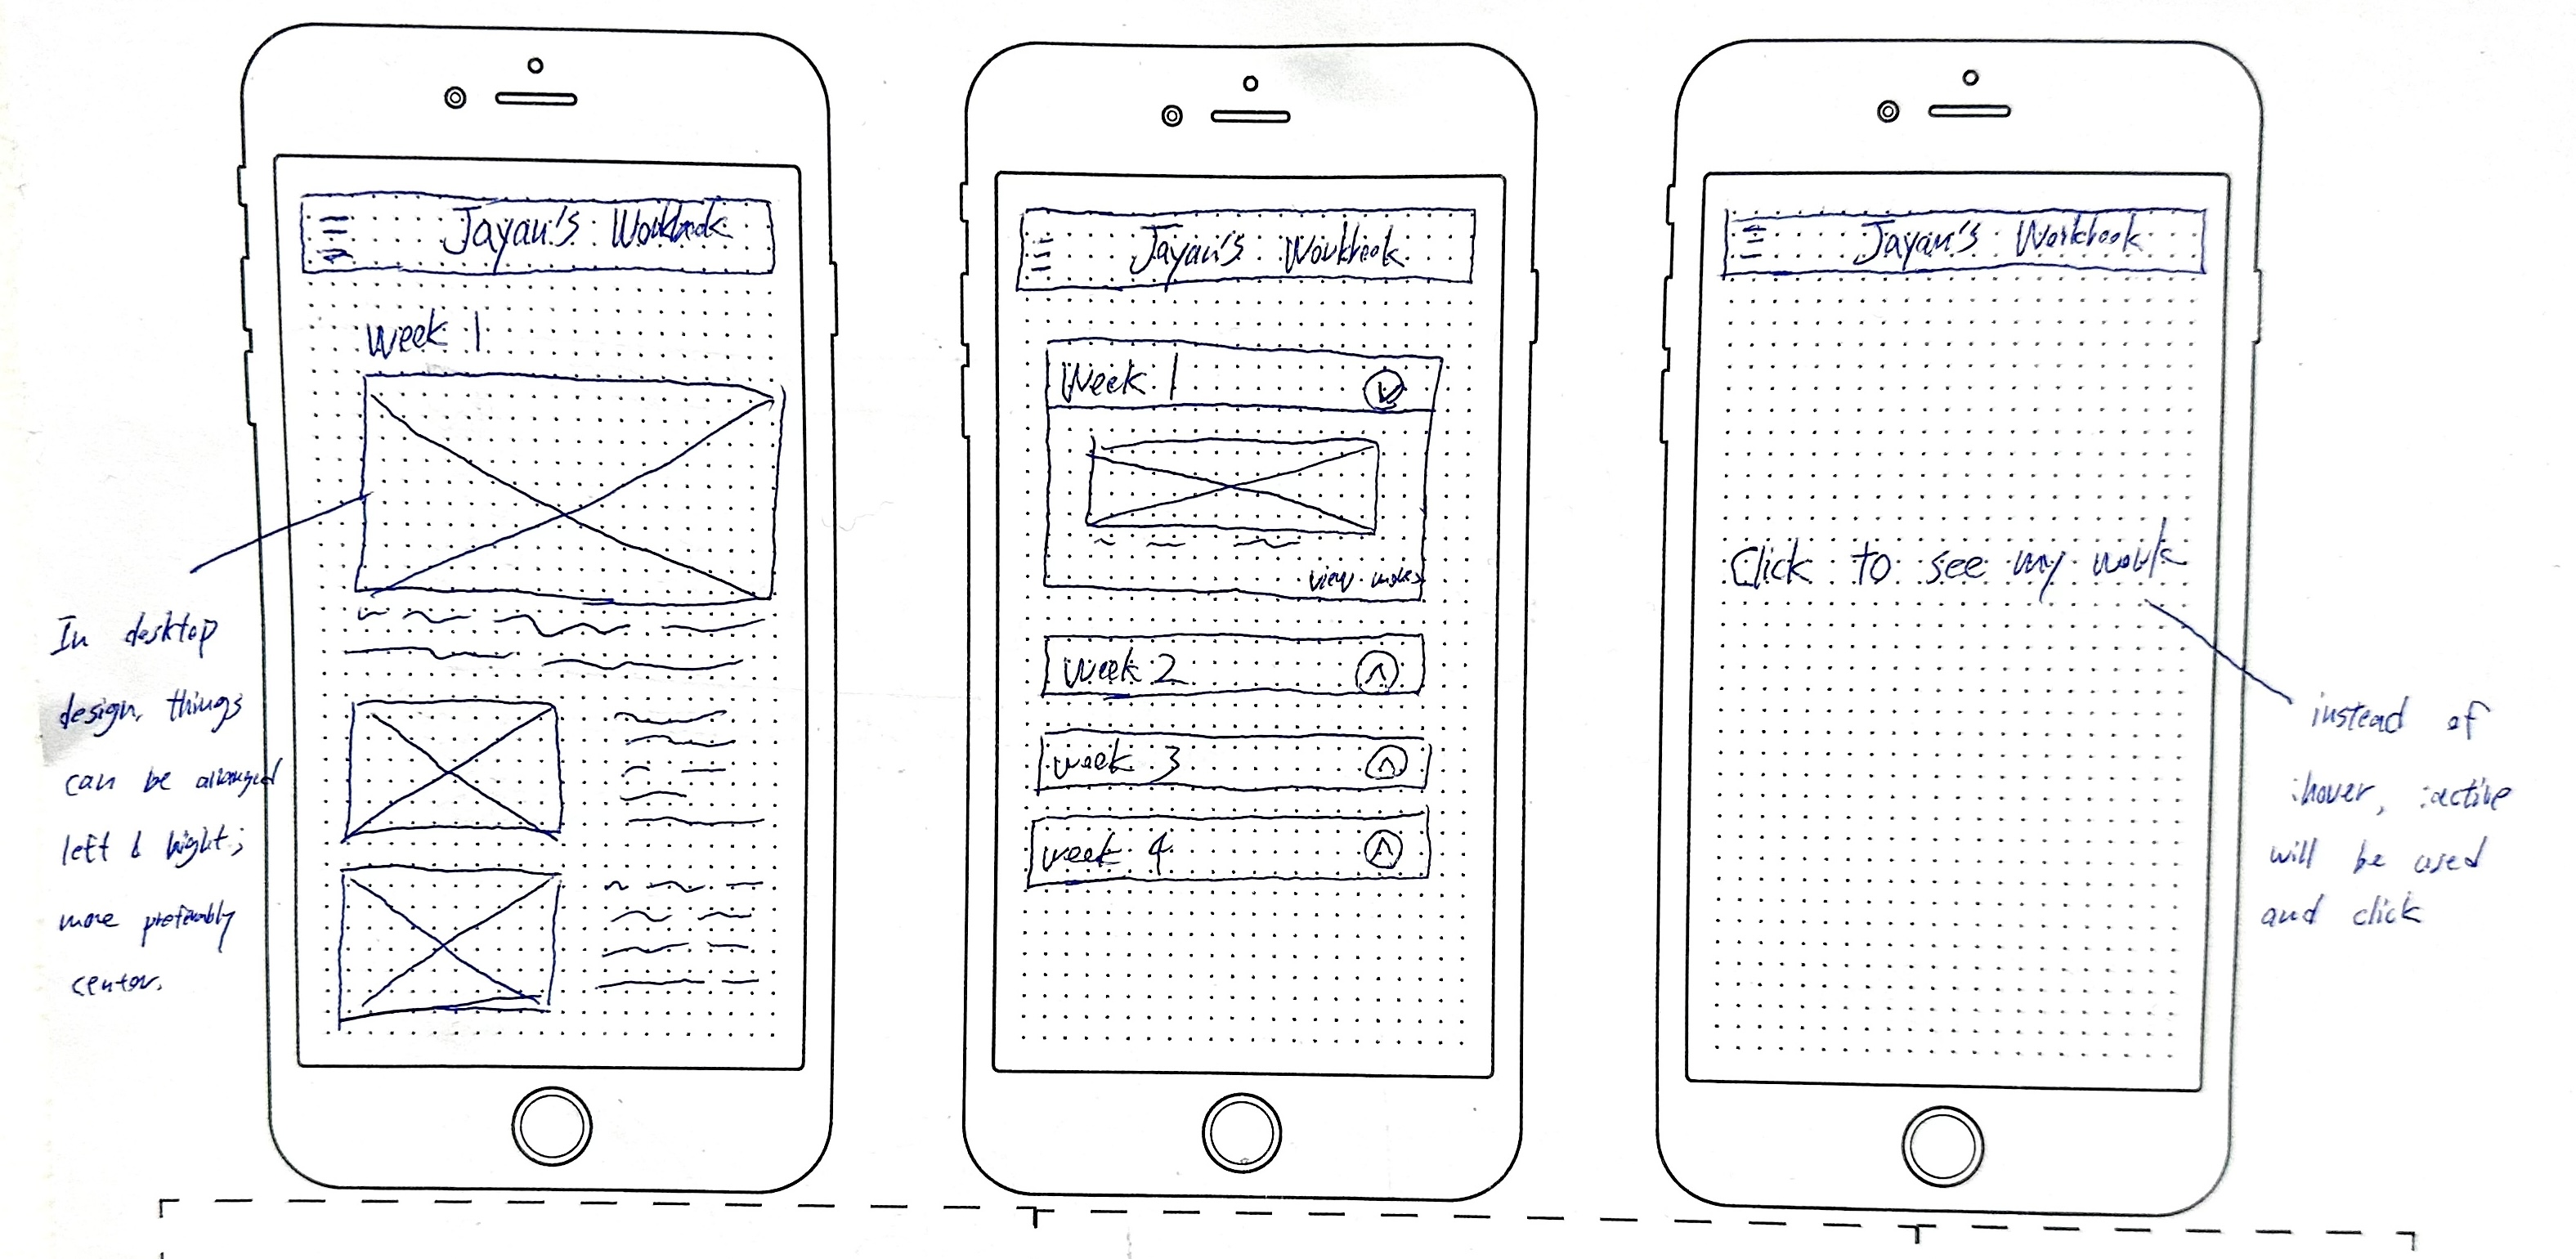 Jayan's Workbook
Week 1
In desktop
design, things
can be arranged
left & right;
more preferably
center.
Jayan's Workbook
Week 1
view more>
week 2
week 3
week 4
Jayan's Workbook
Click to see my work
instead of
:hover, :active
will be used
and click